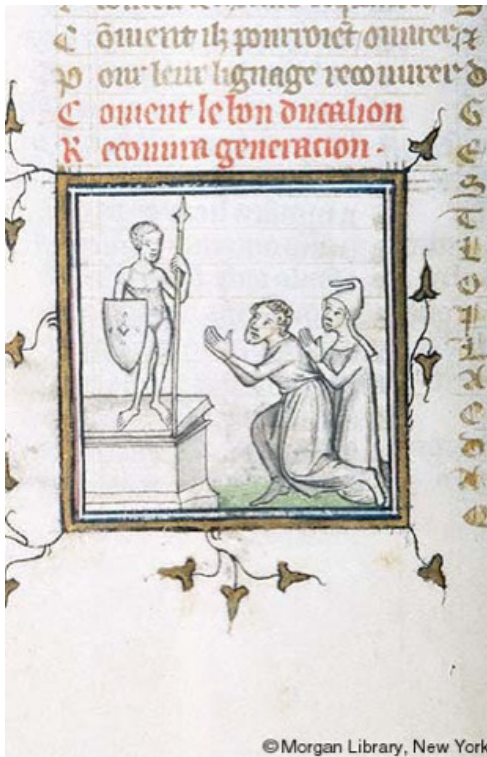 C õment ilz pourroiẽt ouurer
P our leur lignage recouurer
C oment le bon ducalion
R ecouura generacion .
©Morgan Library, New York